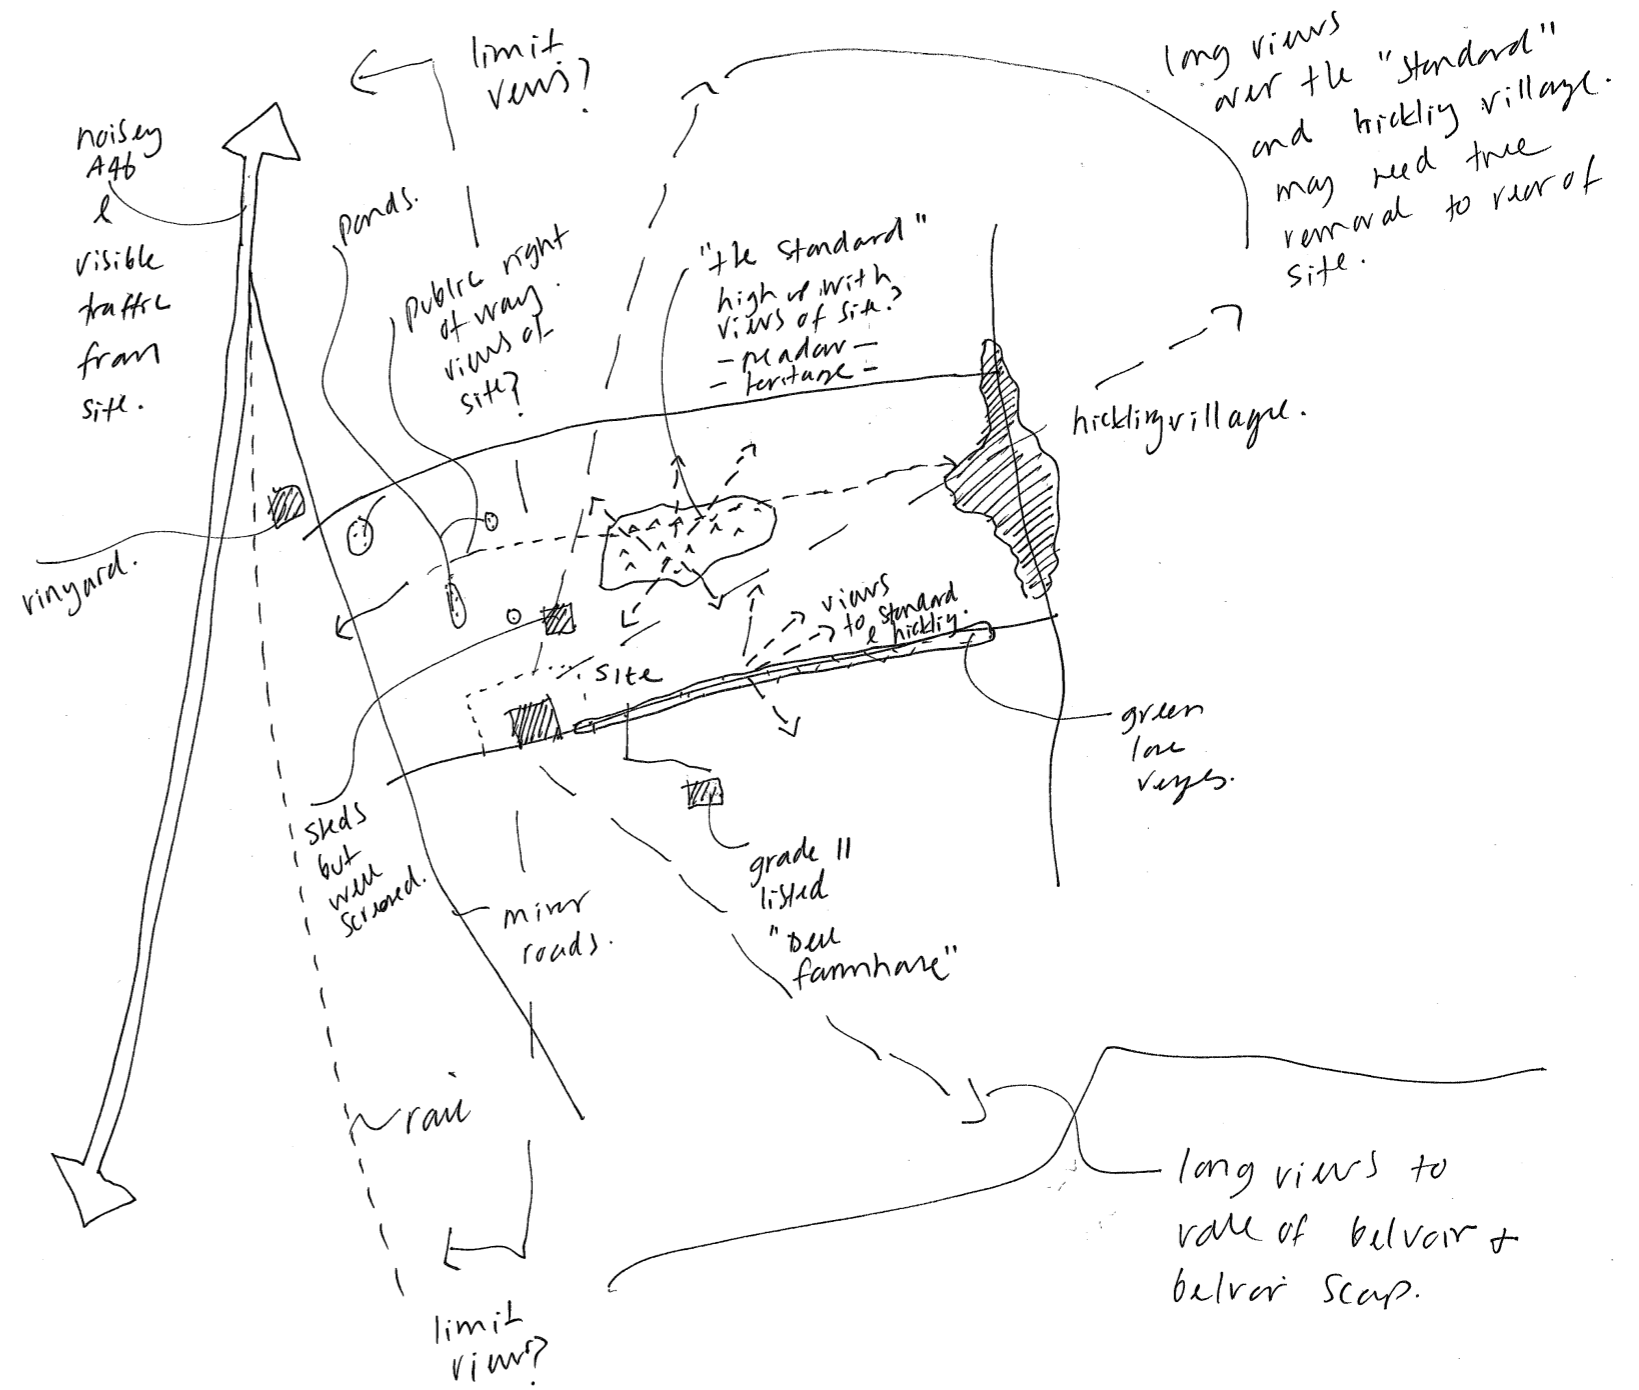 limit
views?
long views
over the "Standard"
and hickling village.
may need tree
removal to rear of
site.
noisey
A46
&
visible
traffic
from
site.
ponds.
public right
of way.
views of
site?
"the standard"
high up with
views of site?
- meadow -
- heritage -
hickling village.
vinyard.
views
to standard
& hickling.
site
green
lane
verges.
sheds
but
well
screened.
minor
roads.
grade II
listed
"Dell
farmhouse"
rail
long views to
vale of belvoir +
belvoir scarp.
limit
views?